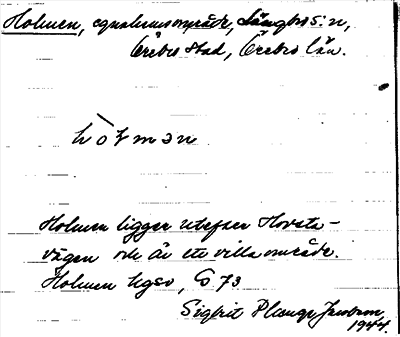 Holmen, egnahemsområde, Längbro s:n,
Örebro stad, Örebro län.
hòɫmən
Holmen ligger utefter Hovsta-
vägen och är ett villaområde.
Holmen hgsv, G 73
Sigfrit Jacobson,
1944.